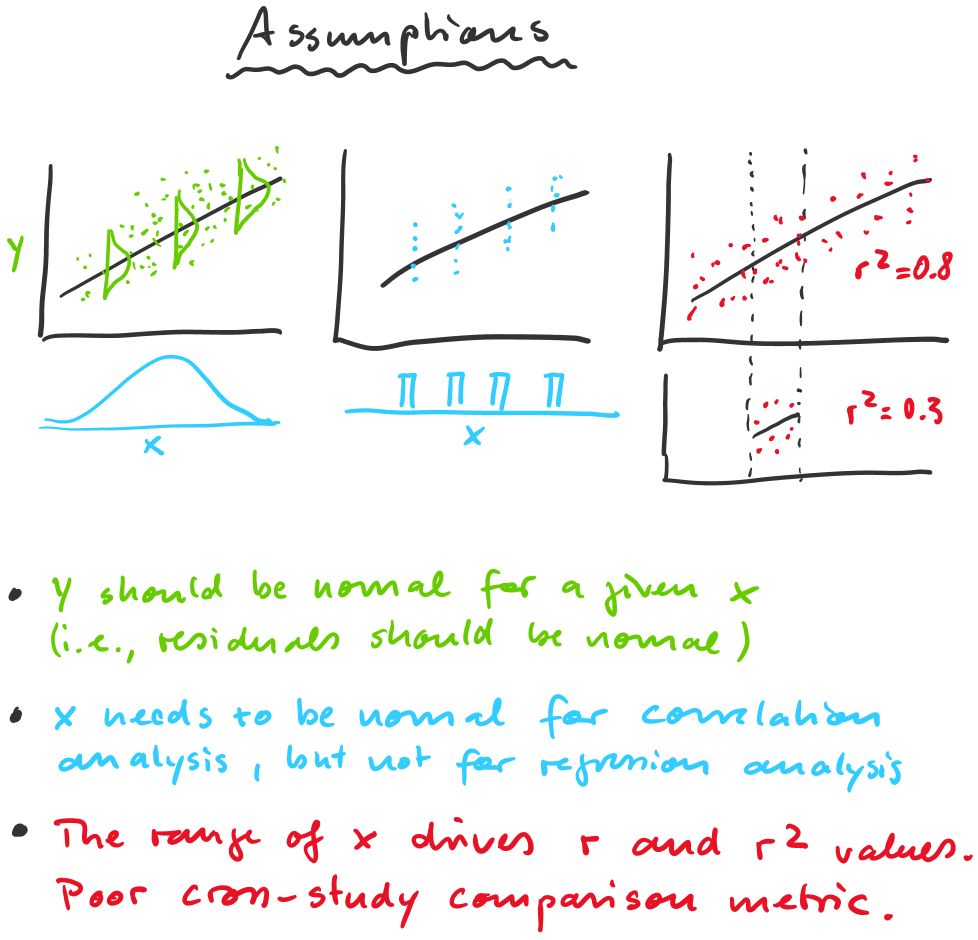 Assumptions
y
x
x
r²=0.8
r²=0.3
• y should be normal for a given x
(i.e., residuals should be normal)
• x needs to be normal for correlation
analysis, but not for regression analysis
• The range of x drives r and r² values.
Poor cross-study comparison metric.